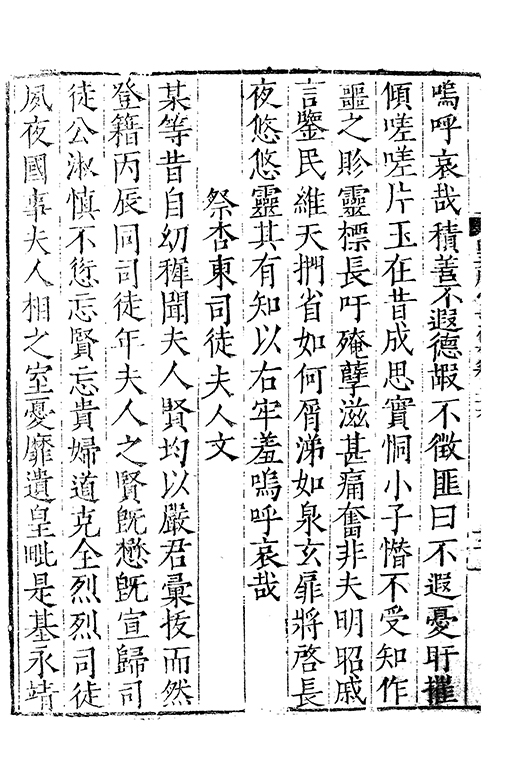 嗚呼哀哉積善不遐德嘏不徵匪曰不遐憂盱摧
傾嗟嗟片玉在昔成思實恫小子憯不受知作
噩之畛靈標長吁殗孽滋甚痛奮非夫明昭戚
言鑒民維天捫省如何屑涕如泉玄扉將啓長
夜悠悠靈其有知以右牢羞嗚呼哀哉
祭杏東司徒夫人文
某等昔自幼穉聞夫人賢均以嚴君彙拔而然
登籍丙辰同司徒年夫人之賢旣懋旣宣歸司
徒公淑慎不愆忘賢忘貴婦道克全烈烈司徒
夙夜國事夫人相之室憂靡遺皇毗是基永靖